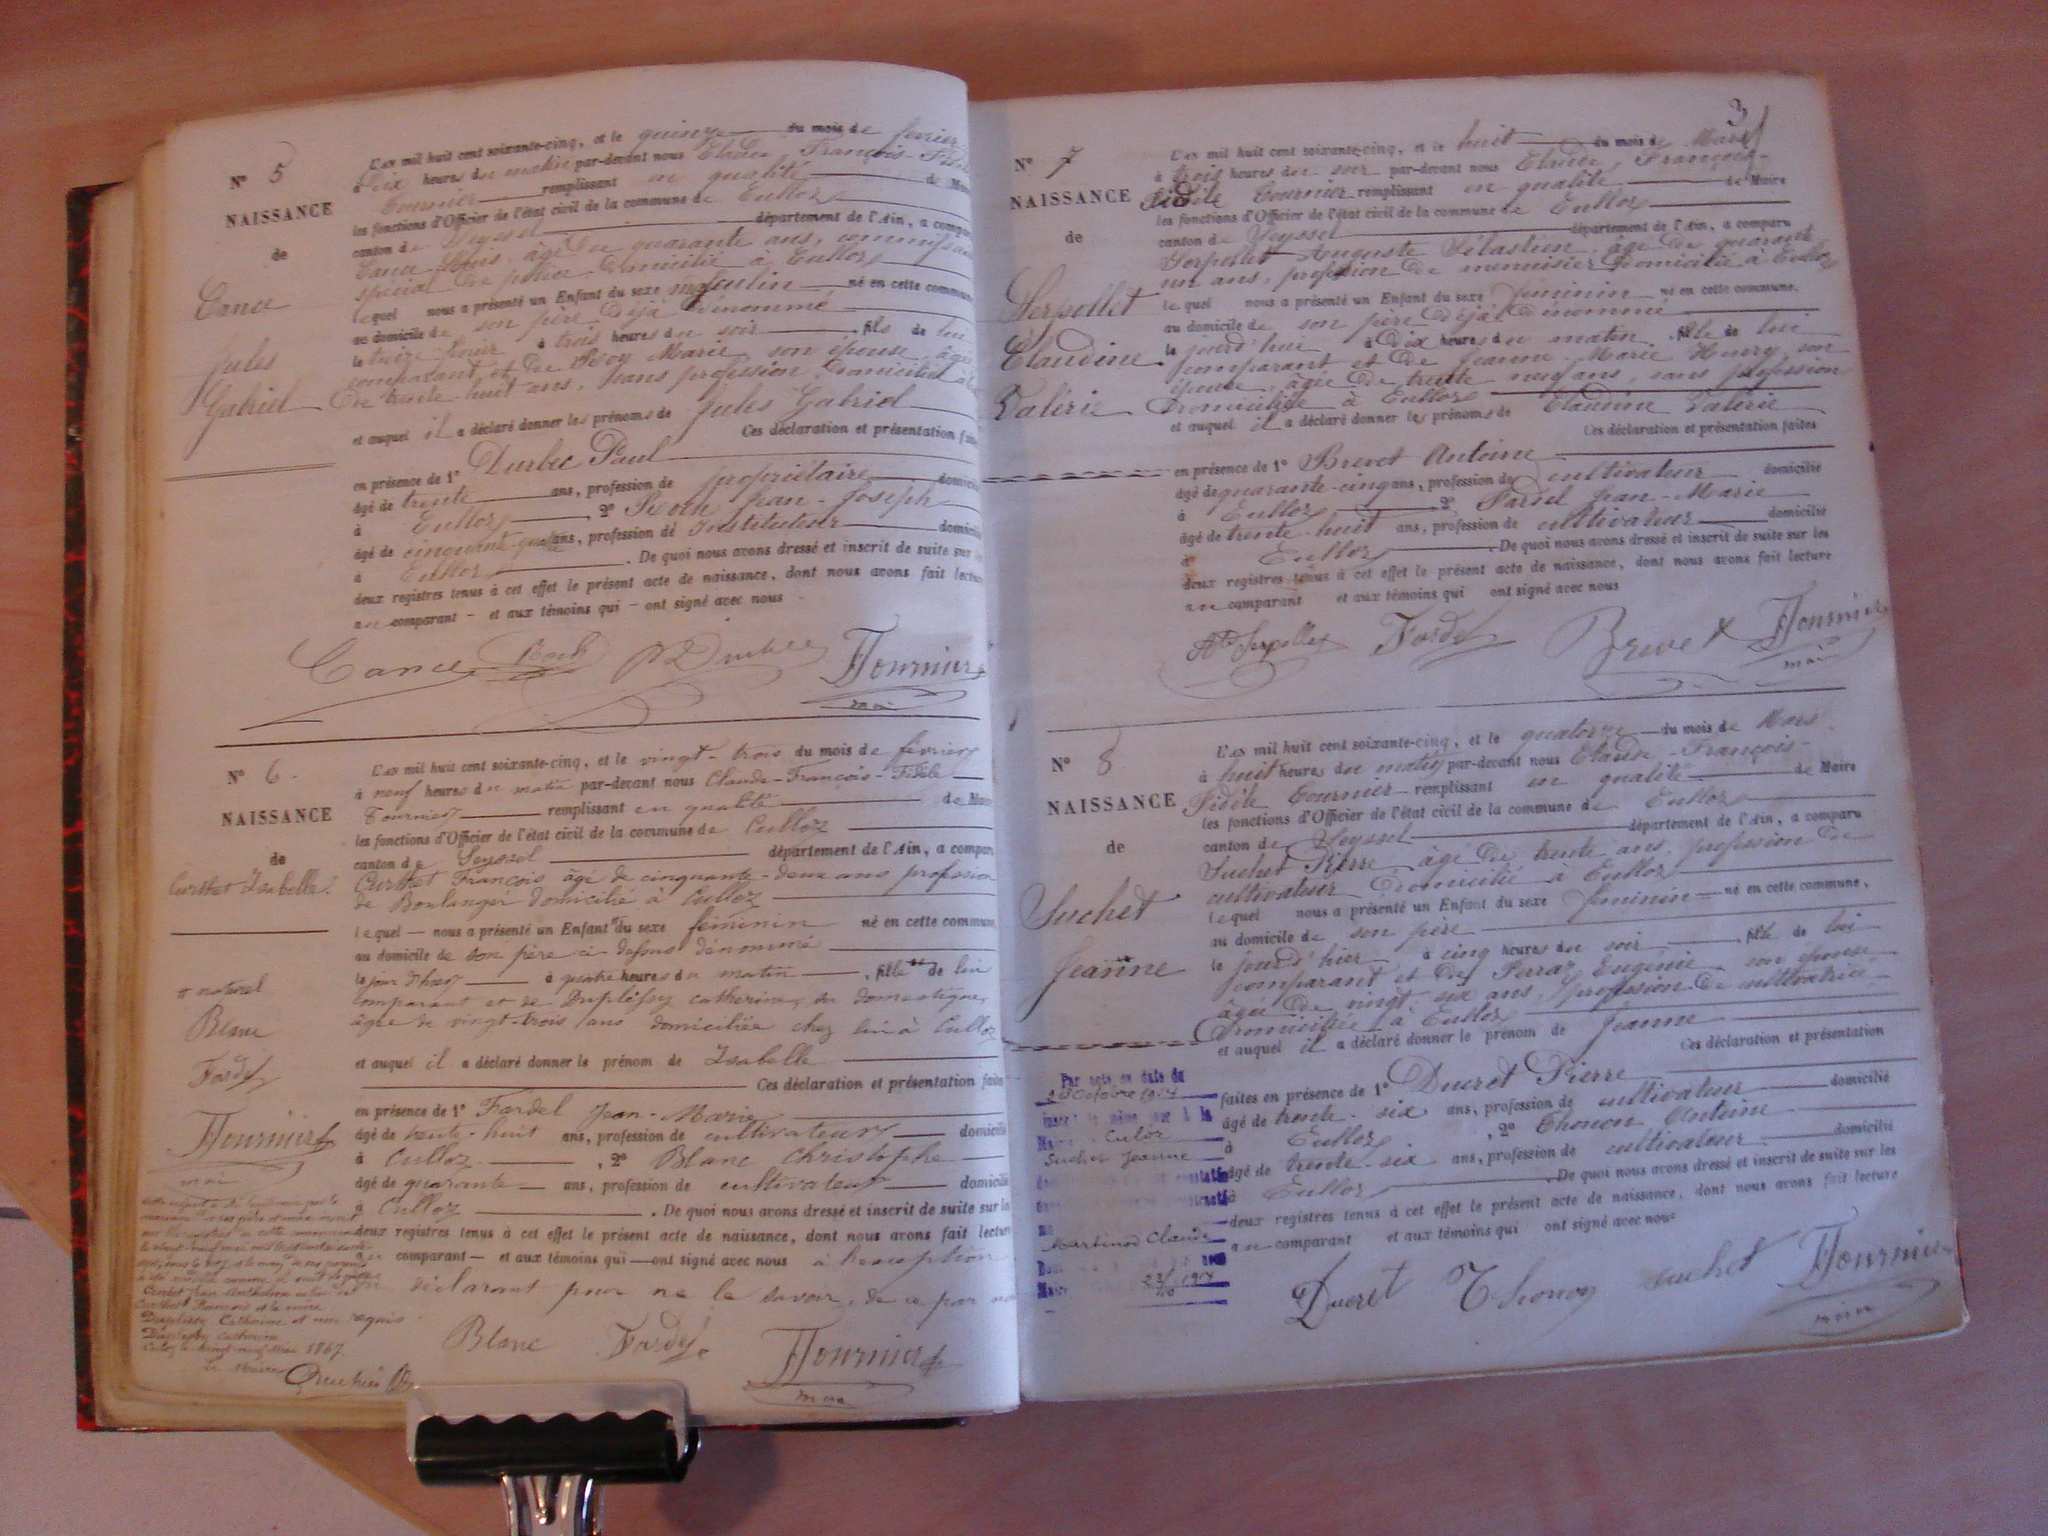 N° 5
NAISSANCE
de
Cance
Jules
Gabriel
L'an mil huit cent soixante-cinq, et le quinze du mois de février
à dix heures du matin par-devant nous Claude François-Fidèle
Fournier remplissant en qualité de Maire
les fonctions d'Officier de l'état civil de la commune de Culloz
canton de Seyssel département de l'Ain, a comparu
Cance Louis, âgé de quarante ans, commissaire
spécial de police domicilié à Culloz
lequel nous a présenté un Enfant du sexe masculin né en cette commune
au domicile de son père déjà dénommé
le treize février à trois heures du soir, fils de lui
comparant et de Marie son épouse âgée
de trente-huit ans, sans profession domiciliée à
et auquel il a déclaré donner les prénoms de Jules Gabriel
Ces déclaration et présentation faites
en présence de 1° Durbec Paul
âgé de trente ans, profession de propriétaire domicilié
à Culloz, 2° Roch Jean-Joseph
âgé de cinquante-quatre ans, profession de Instituteur domicilié
à Culloz. De quoi nous avons dressé et inscrit de suite sur les
deux registres tenus à cet effet le présent acte de naissance, dont nous avons fait lecture
au comparant - et aux témoins qui - ont signé avec nous
Cance Roch Durbec Fournier
maire
N° 6
NAISSANCE
de
Curthet Isabelle.
L'an mil huit cent soixante-cinq, et le vingt-trois du mois de février
à neuf heures du matin par-devant nous Claude-François-Fidèle
Fournier remplissant en qualité de Maire
les fonctions d'Officier de l'état civil de la commune de Culloz
canton de Seyssel département de l'Ain, a comparu
Curthet François âgé de cinquante-deux ans profession
de Boulanger domicilié à Culloz
lequel — nous a présenté un Enfant # du sexe féminin né en cette commune
au domicile de son père ci-dessus dénommé
le jour d'hier à quatre heures du matin, fille de lui
comparant et de Duplessy catherine, sa domestique,
âgée de vingt-trois ans domiciliée chez lui à Culloz
et auquel il a déclaré donner le prénom de Isabelle
Ces déclaration et présentation faites
en présence de 1° Fardel Jean-Marie
âgé de trente-huit ans, profession de cultivateur domicilié
à Culloz, 2° Blanc Christophe
âgé de quarante ans, profession de cultivateur domicilié
à Culloz. De quoi nous avons dressé et inscrit de suite sur les
deux registres tenus à cet effet le présent acte de naissance, dont nous avons fait lecture
au comparant — et aux témoins qui — ont signé avec nous à l'exception
du déclarant pour ne le savoir, de ce par nous
requis.
Blanc Fardel Fournier
maire
# naturel
Blanc
Fardel
Fournier
maire
Curthet François et la mère
Duplessy Catherine
1867
Le Maire
3
N° 7
NAISSANCE
de
Serpollet
Claudine
Valérie
L'an mil huit cent soixante-cinq, et le huit du mois de Mars
à trois heures du soir par-devant nous Claude François-
Fidèle Fournier remplissant en qualité de Maire
les fonctions d'Officier de l'état civil de la commune de Culloz
canton de Seyssel département de l'Ain, a comparu
Serpollet Auguste Sébastien âgé de quarante
un ans, profession de menuisier domicilié à Culloz
lequel nous a présenté un Enfant du sexe féminin né en cette commune,
au domicile de son père déjà dénommé
le jourd'hui à dix heures du matin, fille de lui
comparant et de Jeanne-Marie Henry son
épouse, âgée de trente neuf ans, sans profession
domiciliée à Culloz
et auquel il a déclaré donner les prénoms de Claudine Valérie
Ces déclaration et présentation faites
en présence de 1° Brevet Antoine
âgé de quarante-cinq ans, profession de cultivateur domicilié
à Culloz, 2° Fardel Jean-Marie
âgé de trente-huit ans, profession de cultivateur domicilié
à Culloz. De quoi nous avons dressé et inscrit de suite sur les
deux registres tenus à cet effet le présent acte de naissance, dont nous avons fait lecture
au comparant et aux témoins qui ont signé avec nous
Serpollet Fardel Brevet Fournier
maire
N° 8
NAISSANCE
de
Suchet
Jeanne
L'an mil huit cent soixante-cinq, et le quatorze du mois de Mars
à huit heures du matin par-devant nous Claude-François-
Fidèle Fournier remplissant en qualité de Maire
les fonctions d'Officier de l'état civil de la commune de Culloz
canton de Seyssel département de l'Ain, a comparu
Suchet Pierre âgé de trente ans, profession de
cultivateur domicilié à Culloz
lequel nous a présenté un Enfant du sexe féminin né en cette commune,
au domicile de son père
le jour d'hier à cinq heures du soir, fille de lui
comparant et de Perraz Eugénie son épouse
âgée de vingt-six ans, profession de cultivatrice
domiciliée à Culloz
et auquel il a déclaré donner le prénom de Jeanne
Ces déclaration et présentation
faites en présence de 1° Ducret Pierre
âgé de trente-six ans, profession de cultivateur domicilié
à Culloz, 2° Thonon Antoine
âgé de trente-six ans, profession de cultivateur domicilié
à Culloz. De quoi nous avons dressé et inscrit de suite sur les
deux registres tenus à cet effet le présent acte de naissance, dont nous avons fait lecture
au comparant et aux témoins qui ont signé avec nous
Ducret Thonon Suchet Fournier
maire
Par acte en date du
Octobre 1917
Culoz
Suchet Jeanne
Martinod Claude
1917